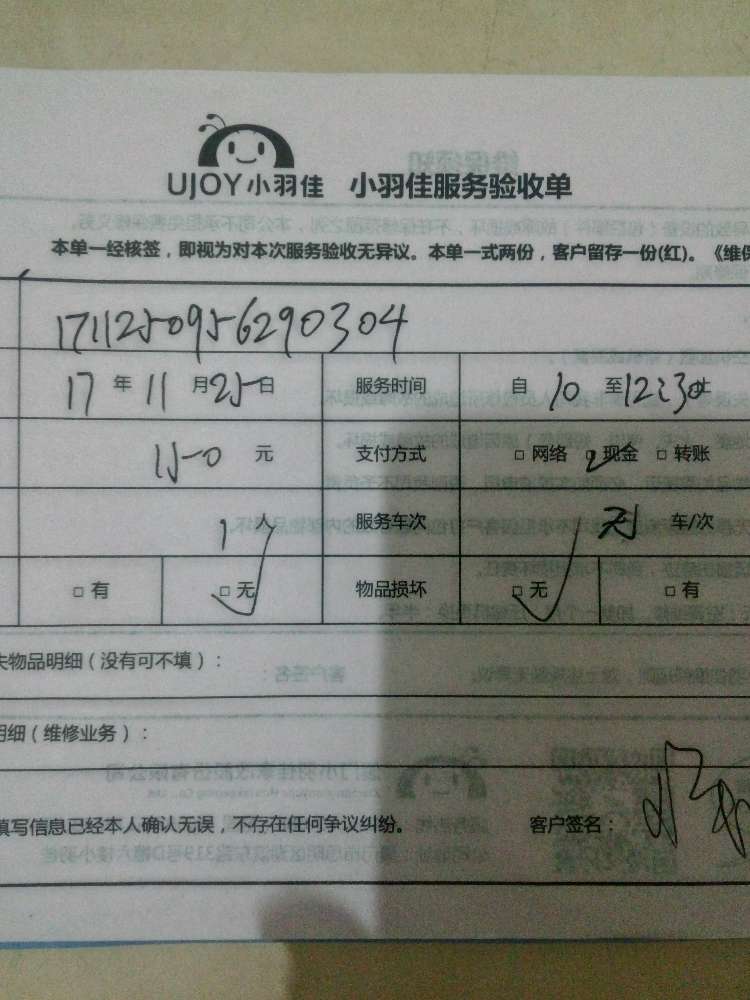 UJOY小羽佳 小羽佳服务验收单
本单一经核签，即视为对本次服务验收无异议。本单一式两份，客户留存一份(红)。《维保
1711250956290304
17 年 11 月 25 日 服务时间 自 10 至 12:30 止
150 元 支付方式 □ 网络 □ 现金 □ 转账
1 服务车次 车/次
□ 有 □ 无 物品损坏 □ 无 □ 有
失物品明细（没有可不填）：
明细（维修业务）：
填写信息已经本人确认无误，不存在任何争议纠纷。 客户签名：